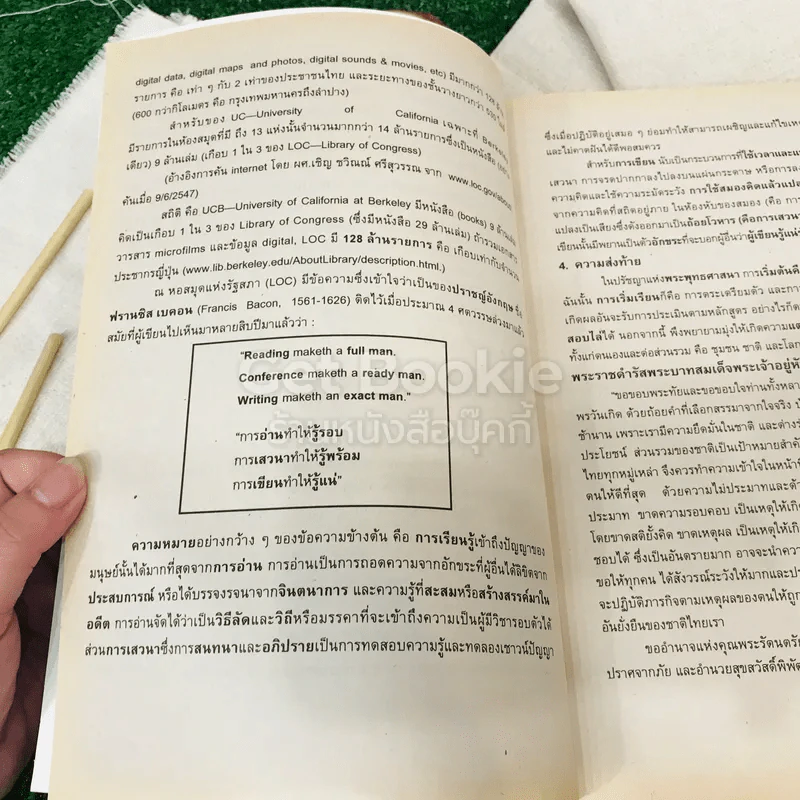 digital data, digital maps and photos, digital sounds & movies, etc) มีมากกว่า 128 ล้าน
รายการ คือ เท่า ๆ กับ 2 เท่าของประชาชนไทย และระยะทางของชั้นวางยาวกว่า 530 ไมล์
(600 กว่ากิโลเมตร คือ กรุงเทพมหานครถึงลำปาง)
สำหรับของ UC—University of California เฉพาะที่ Berkeley
มีรายการในห้องสมุดที่มี ถึง 13 แห่งนั้นจำนวนมากกว่า 14 ล้านรายการซึ่งเป็นหนังสือ
เดียว) 9 ล้านเล่ม (เกือบ 1 ใน 3 ของ LOC—Library of Congress)
(อ้างอิงการค้น internet โดย ผศ.เชิญ ชวิณณ์ ศรีสุวรรณ จาก www.loc.gov/about
ค้นเมื่อ 9/6/2547)
สถิติ คือ UCB—University of California at Berkeley มีหนังสือ (books) 9 ล้านเล่ม
คิดเป็นเกือบ 1 ใน 3 ของ Library of Congress (ซึ่งมีหนังสือ 29 ล้านเล่ม) ถ้ารวมเอกสาร
วารสาร microfilms และข้อมูล digital, LOC มี 128 ล้านรายการ คือ เกือบเท่ากับจำนวน
ประชากรญี่ปุ่น (www.lib.berkeley.edu/AboutLibrary/description.html.)
ณ หอสมุดแห่งรัฐสภา (LOC) มีข้อความซึ่งเข้าใจว่าเป็นของปราชญ์อังกฤษ ชื่อ
ฟรานซิส เบคอน (Francis Bacon, 1561-1626) ติดไว้เมื่อประมาณ 4 ศตวรรษล่วงมาแล้ว
สมัยที่ผู้เขียนไปเห็นมาหลายสิบปีมาแล้วว่า :
"Reading maketh a full man.
Conference maketh a ready man.
Writing maketh an exact man."
"การอ่านทำให้รู้รอบ
การเสวนาทำให้รู้พร้อม
การเขียนทำให้รู้แน่"
ความหมายอย่างกว้าง ๆ ของข้อความข้างต้น คือ การเรียนรู้เข้าถึงปัญญาของ
มนุษย์นั้นได้มากที่สุดจากการอ่าน การอ่านเป็นการถอดความจากอักขระที่ผู้อื่นได้ลิขิตจาก
ประสบการณ์ หรือได้บรรจงรจนาจากจินตนาการ และความรู้ที่สะสมหรือสร้างสรรค์มาใน
อดีต การอ่านจัดได้ว่าเป็นวิธีลัดและวิถีหรือมรรคาที่จะเข้าถึงความเป็นผู้มีวิชารอบตัวได้
ส่วนการเสวนาซึ่งการสนทนาและอภิปรายเป็นการทดสอบความรู้และทดลองเชาวน์ปัญญา
Get Bookie
ร้านหนังสือบุ๊คกี้
ซึ่งเมื่อปฏิบัติอยู่เสมอ ๆ ย่อมทำให้สามารถเผชิญและแก้ไขเห
และไม่คาดฝันได้ดีพอสมควร
สำหรับการเขียน นับเป็นกระบวนการที่ใช้เวลาและแ
เสวนา การจรดปากกาลงไปลงบนแผ่นกระดาษ หรือการล
ความคิดและใช้ความระมัดระวัง การใช้สมองคิดแล้วแปล
จากความคิดที่สถิตอยู่ภาย ในห้องหับของสมอง (คือ การ
แปลงเป็นเสียงซึ่งดังออกมาเป็นถ้อยโวหาร (คือการเสวนา
เขียนนั้นมีพยานเป็นตัวอักขระที่จะบอกผู้อื่นว่าผู้เขียนรู้แน่
4. ความส่งท้าย
ในปรัชญาแห่งพระพุทธศาสนา การเริ่มต้นคื
ฉันนั้น การเริ่มเรียนก็คือ การตระเตรียมตัว และกา
เกิดผลอันจะรับการประเมินตามหลักสูตร อย่างไรก็ต
สอบไล่ได้ นอกจากนี้ พึงพยายามมุ่งให้เกิดความแต
ทั้งแก่ตนเองและต่อส่วนรวม คือ ชุมชน ชาติ และโลก
พระราชดำรัสพระบาทสมเด็จพระเจ้าอยู่หั
"ขอขอบพระทัยและขอขอบใจท่านทั้งหลา
พรวันเกิด ด้วยถ้อยคำที่เลือกสรรมาจากใจจริง น้
ช้านาน เพราะเรามีความยืดมั่นในชาติ และต่างรั
ประโยชน์ ส่วนรวมของชาติเป็นเป้าหมายสำคัญ
ไทยทุกหมู่เหล่า จึงควรทำความเข้าใจในหน้าที่
ตนให้ดีที่สุด ด้วยความไม่ประมาทและด้ว
ประมาท ขาดความรอบคอบ เป็นเหตุให้เกิด
โดยขาดสติยั้งคิด ขาดเหตุผล เป็นเหตุให้เกิ
ชอบได้ ซึ่งเป็นอันตรายมาก อาจจะนำควา
ขอให้ทุกคน ได้สังวรณ์ระวังให้มากและปร
จะปฏิบัติภารกิจตามเหตุผลของตนให้ถูก
อันยั่งยืนของชาติไทยเรา
ขออำนาจแห่งคุณพระรัตนตรัย
ปราศจากภัย และอำนวยสุขสวัสดิ์พิพัฒ